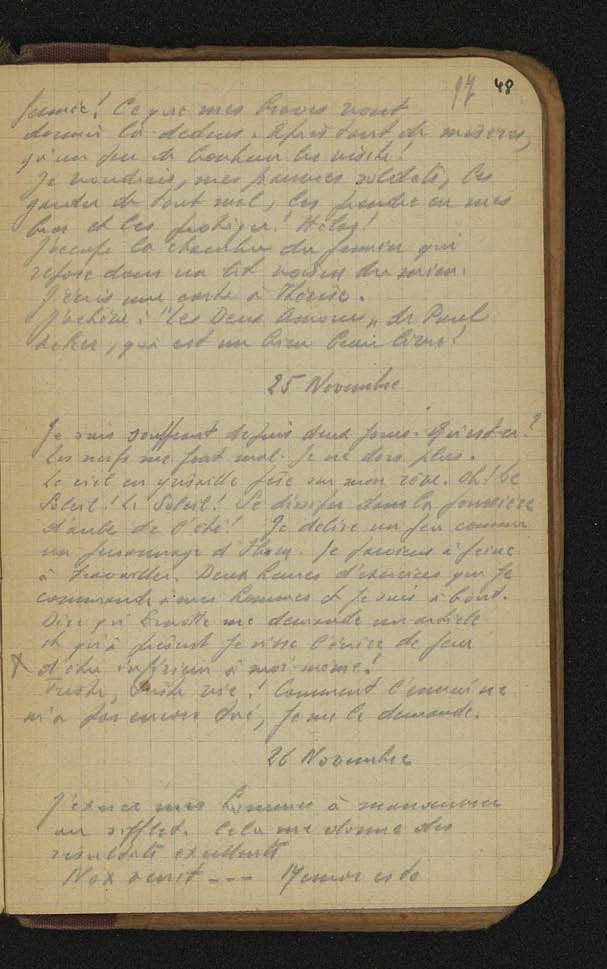 17 48
fumée! Ce que mes braves vont
dormir là-dedans. Après tant de misères,
qu'un peu de bonheur les visite!
Je voudrais, mes pauvres soldats, les
garder de tout mal, les prendre en mes
bras et les protéger! Hélas!
J'occupe la chambre du fermier qui
repose dans un lit voisin du mien.
J'écris une carte à Thérèse.
J'achève: "Les Deux Amours" de Paul
, qui est un bien beau livre!
25 Novembre
Je suis souffrant depuis deux jours. Qu'est-ce?
Les nerfs me font mal. Je ne dors plus.
Le ciel en grisaille pèse sur mon rêve. Oh! Ce
Soleil! Le Soleil! Se dissiper dans la poussière
d'aube de l'été! Je délire un peu comme
un personnage d'Ibsen. Je parviens à peine
à travailler. Deux heures d'exercices que je
commande à mes hommes et je suis à bout.
Dire qui me demande un article
et qu'à présent je n'ose l'écrire de peur
X d'être inférieur à moi-même!
Triste, triste vie! Comment l'ennui ne
m'a pas encore tué, je me le demande.
26 Novembre
J'exerce mes hommes à manœuvrer
au sifflet. Cela me donne des
résultats excellents
Nox venit ---